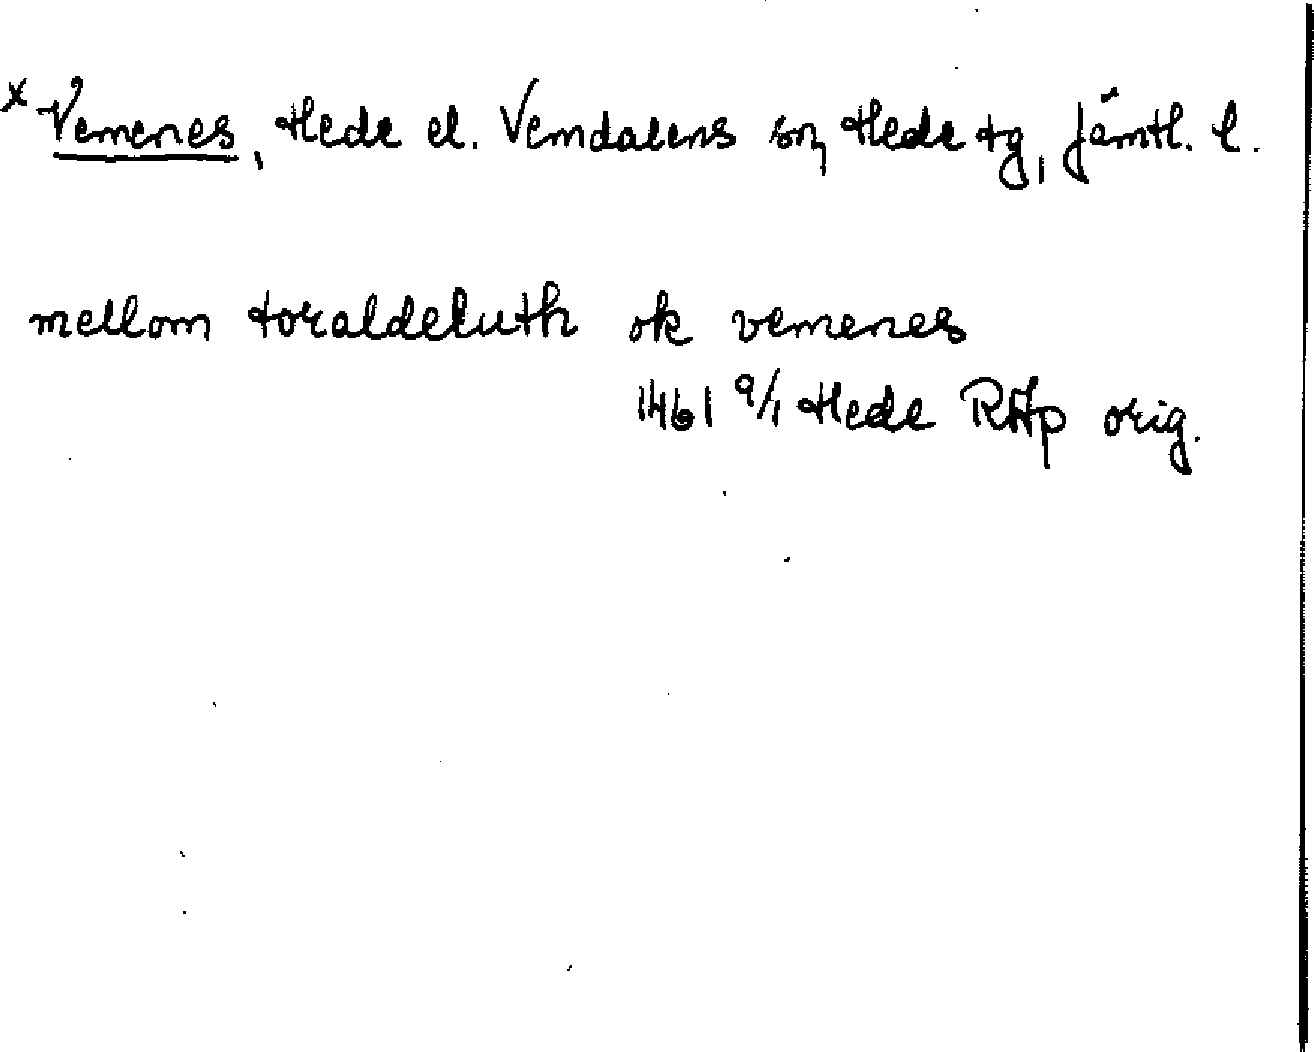 x Vemenes, Hede el. Vemdalens sn, Hede tg, Jämtl. l.
mellom toraldeluth ok vemenes
1461 9/1 Hede RAp orig.